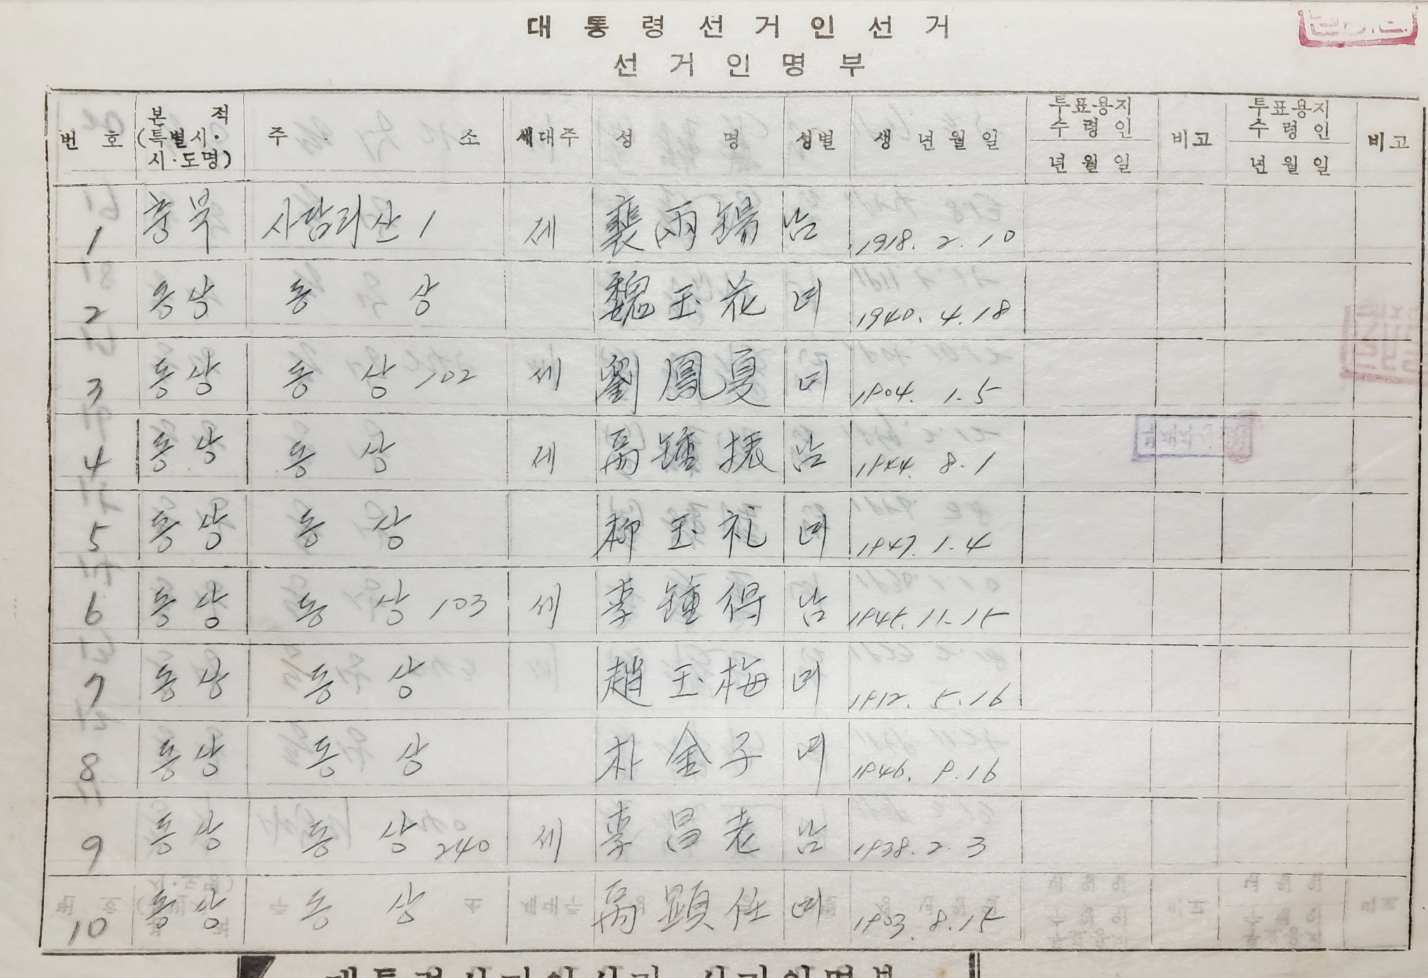 대통령선거인선거
선거인명부
번호 본적 (특별시·시·도명) 주소 세대주 성명 성별 생년월일 투표용지 수령인 년월일 비고 투표용지 수령인 년월일 비고
1 충북 사담리산 1 세 裵雨錫 남 1918. 2. 10
2 동상 동상 魏玉花 여 1940. 4. 18
3 동상 동상 102 세 劉鳳夏 여 1904. 1. 5
4 동상 동상 세 禹鍾振 남 1944. 8. 1
5 동상 동상 柳玉礼 여 1947. 1. 4
6 동상 동상 103 세 李鍾得 남 1945. 11. 15
7 동상 동상 趙玉梅 여 1912. 5. 16
8 동상 동상 朴金子 여 1946. 9. 16
9 동상 동상 240 세 李昌老 남 1938. 2. 3
10 동상 동상 禹顕任 여 1903. 8. 15
대통령선거인선거 선거인명부